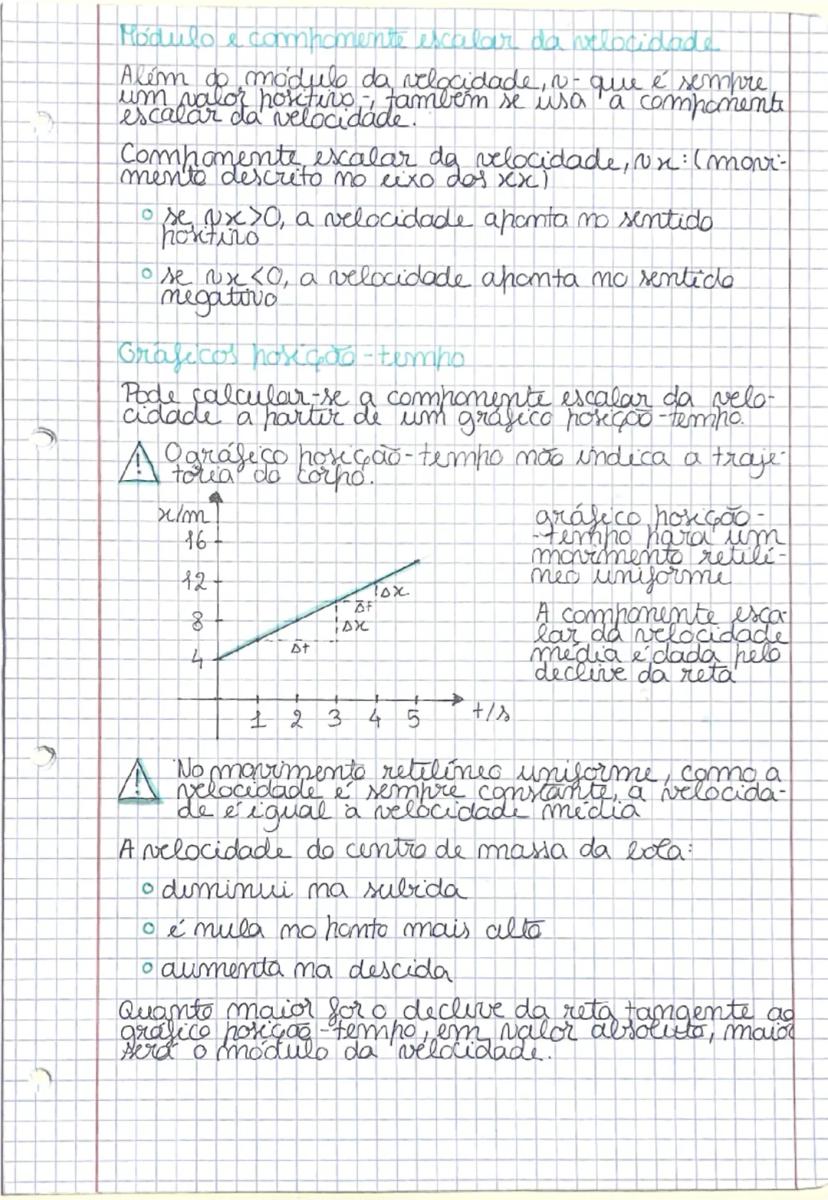 Módulo e componente escalar da velocidade
Além do módulo da velocidade, v - que é sempre
um valor positivo -, também se usa a componente
escalar da velocidade.
Componente escalar da velocidade, vx: (movi-
mento descrito no eixo dos xx)
se vx>0, a velocidade aponta no sentido
positivo
se vx<0, a velocidade aponta no sentido
negativo
Gráficos posição-tempo
Pode calcular-se a componente escalar da velo-
cidade a partir de um gráfico posição-tempo.
! O gráfico posição-tempo não indica a traje-
tória do corpo.
x/m
16
12
8
4
Δx
Δt
Δx
Δt
1 2 3 4 5
t/s
gráfico posição-
-tempo para um
movimento retilí-
neo uniforme
A componente esca-
lar da velocidade
média é dada pelo
declive da reta
! No movimento retilíneo uniforme, como a
velocidade é sempre constante, a velocida-
de é igual à velocidade média
A velocidade do centro de massa da bola:
diminui na subida
é nula no ponto mais alto
aumenta na descida
Quanto maior for o declive da reta tangente ao
gráfico posição-tempo, em valor absoluto, maior
será o módulo da velocidade.